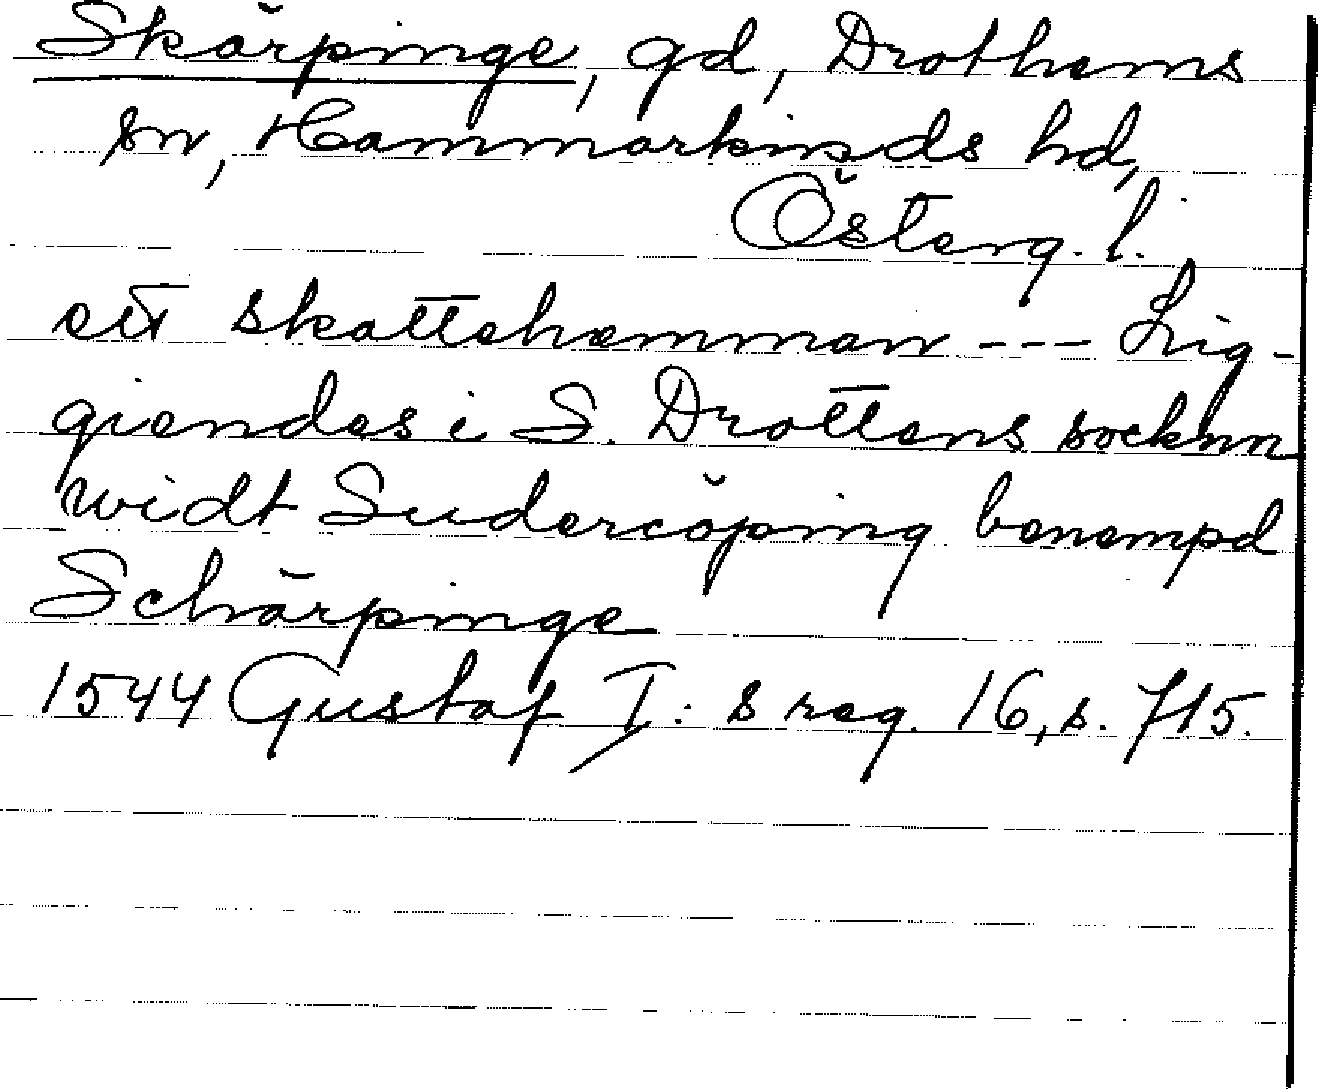 Skärpinge, gd, Drothems
sn, Hammarkinds hd,
Österg. l.
ett skattehemman --- Lig-
giendes i S. Drottens socknn
widt Sudercöping benempd
Schärpinge
1544 Gustaf I:s reg. 16, s. 715.